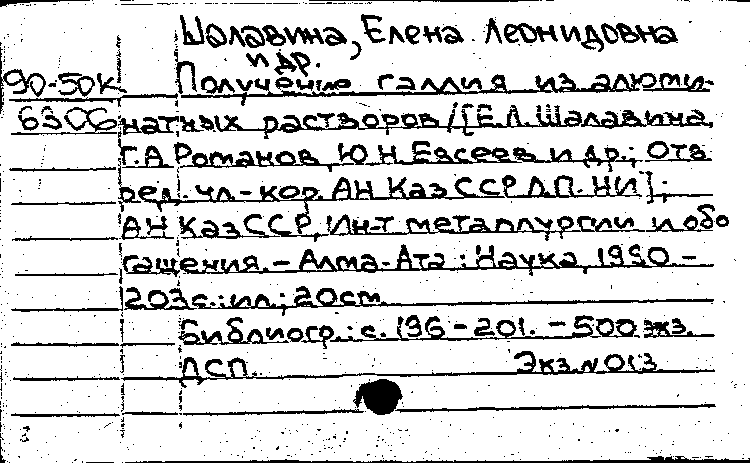 Шалавина, Елена Леонидовна
и др.
90-50К Получение галлия из алюми-
6306 натных растворов /[Е.Л. Шалавина,
Г.А Романов, Ю.Н. Евсеев и др.; Отв
ред. чл.-кор. АН КазССР Л.П. НИ];
АН КазССР, Ин-т металлургии и обо
гащения. - Алма-Ата: Наука, 1990. -
203с.: ил.; 20см.
Библиогр.: с. 196-201. - 500 экз.
ДСП. Экз.N 013